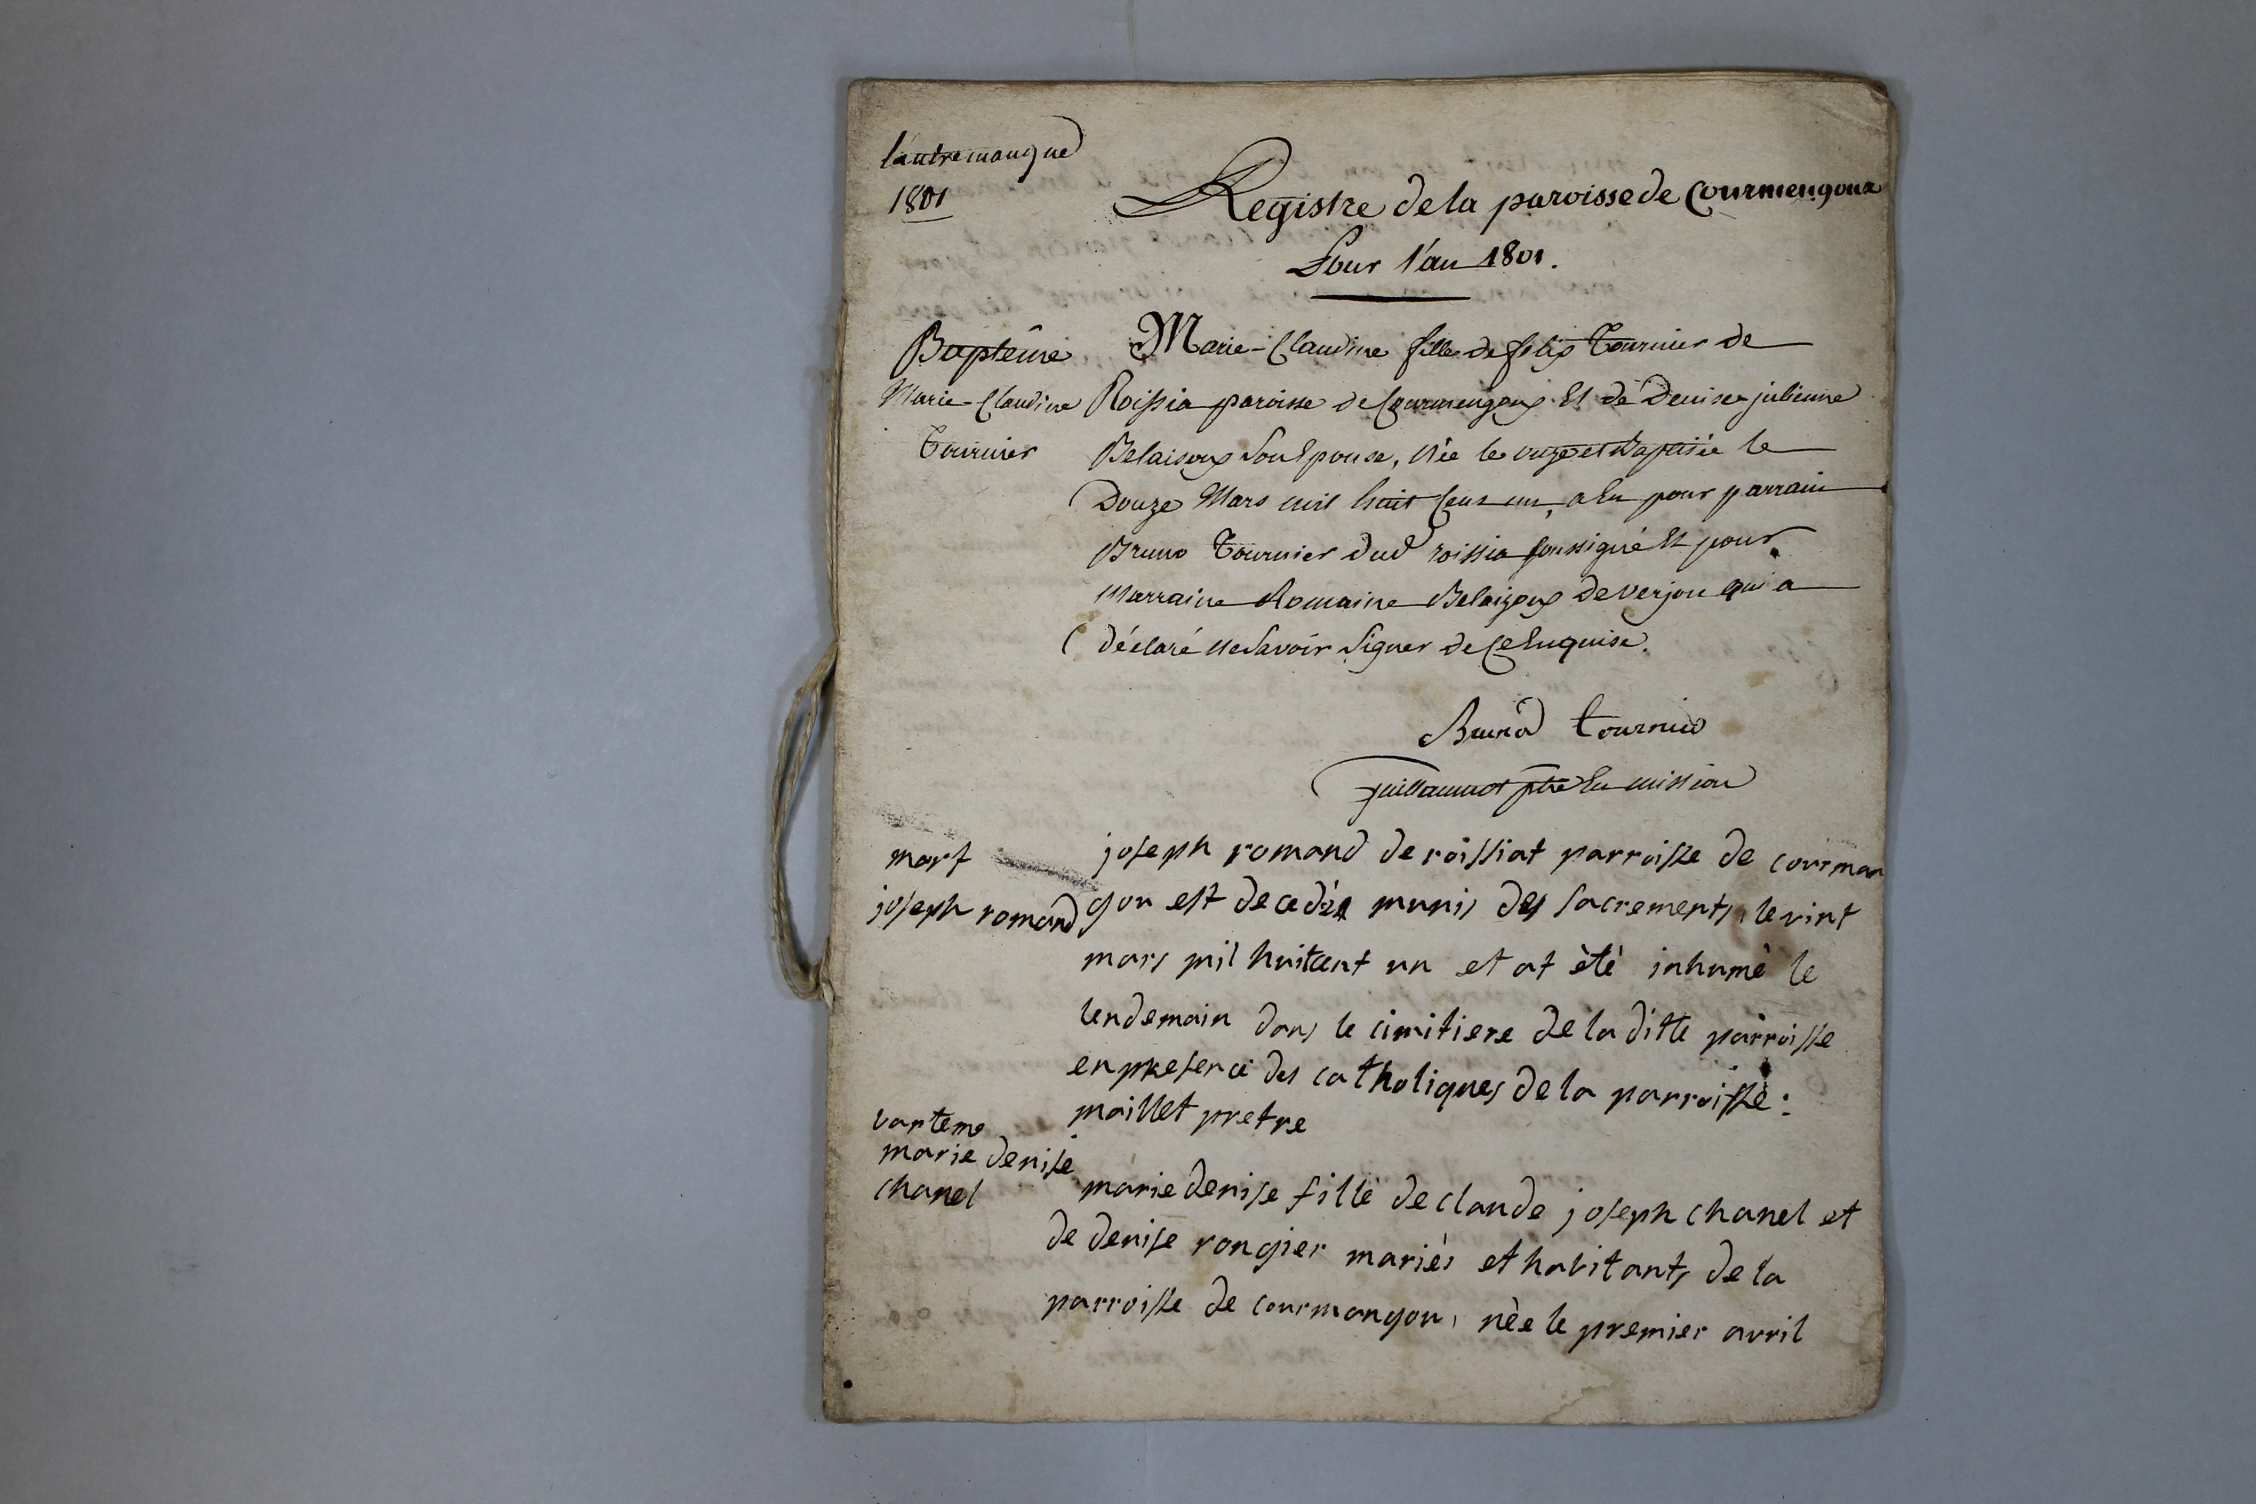 l'autre manque
1801
Registre de la paroisse de Courmengoux
Pour l'an 1801.
Baptême
Marie-Claudine
Tournier
Marie-Claudine fille de felix Tournier de
Roissia paroisse de Courmengoux Et de Denise julienne
Belaisoux Son Epouse, Née le onze et Baptisée le
Douze Mars mil huit Cens un, a Eu pour parrain
Bruno Tournier dud roissia soussigné Et pour
Marraine Romaine Belaizoux de verjon qui a
déclaré ne Savoir Signer de ce Enquise.
Bruno tournier
guillaumot ptre En mission
mort
joseph romand
joseph romand de roissiat parroisse de courman
gou est decedée munis des sacrements, le vint
mars mil huitcent un et at èté inhumè le
lendemain dans le cimitiere de la ditte parroisse
en presence des catholiques de la parroisse:
maillet pretre
bapteme
marie denise
chanel
marie denise fille de claude joseph chanel et
de denise rongier mariés et habitants de la
parroisse de courmangou, nèe le premier avril